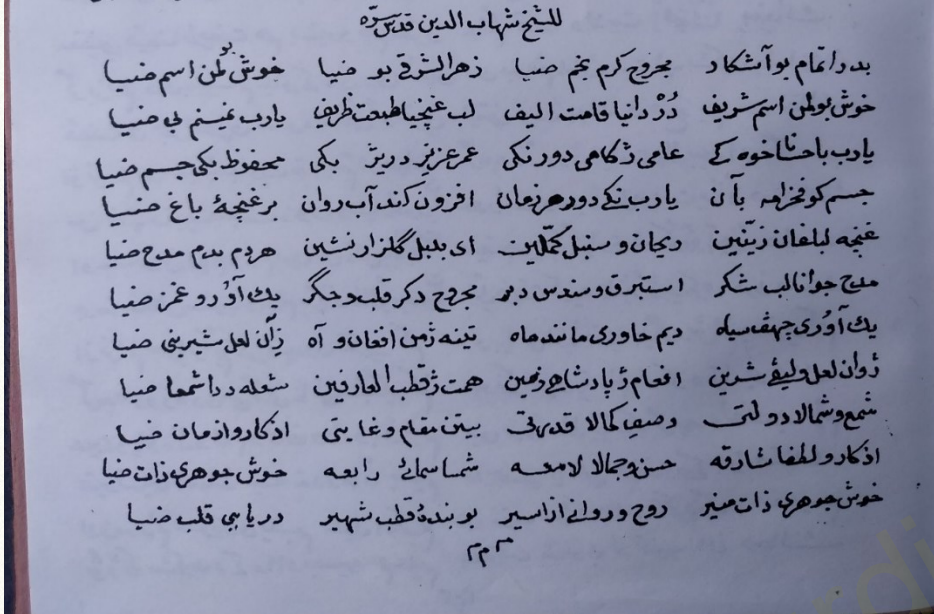 للشيخ شهاب الدين قدس سرّه
بدرا تمام بو آشكار مجروح كرم نجم ضيا زهر الشرقى بو ضيا خوش بو لمن اسم ضيا
خوش بو لمن اسم شريف دُرْ دانيا قامت اليف لب غنچيا طبعت ظريف يارب نمينم بى ضيا
يارب باحسانا خوه كى عامى ژ كاهى دور نكى عمر عزيز دريژ بكى محفوظ بكى جسم ضيا
جسم كو فخرا مه بآن يارب نكى دور هر زمان افزون كند آب روان بر غنچهٔ باغ ضيا
غنچه لبلفان زيّنين ريحان و سنبل كمّلين اى بلبل گلزار نشين هردم بدم مدح ضيا
مدح جوانا لب شكر استبرق و سندس دبر مجروح دكر قلب و جگر يك آوُر و غمز ضيا
يك آوُرى چهف سياه ديم خاورى مانند ماه تينه ژمن افغان و آه ژان لعل شيرينى ضيا
ژوان لعل و ليڤى شرين افعام ژ پادشاهى زمين همت ژ قطب العارفين شعله ددا شمعا ضيا
شمع و شمالا دولتى وصف كمالا قدرتى بيتن مقام و غايتى اذكار و اذمان ضيا
اذكار و لطفا شارقه حسن و جمالا لامعه شمسا سمائ رابعه خوش جوهرى ذات ضيا
خوش جوهرى ذات منير روح و روانى از اسير بو بندهٔ قطب شهير دريا بى قلب ضيا
م م م